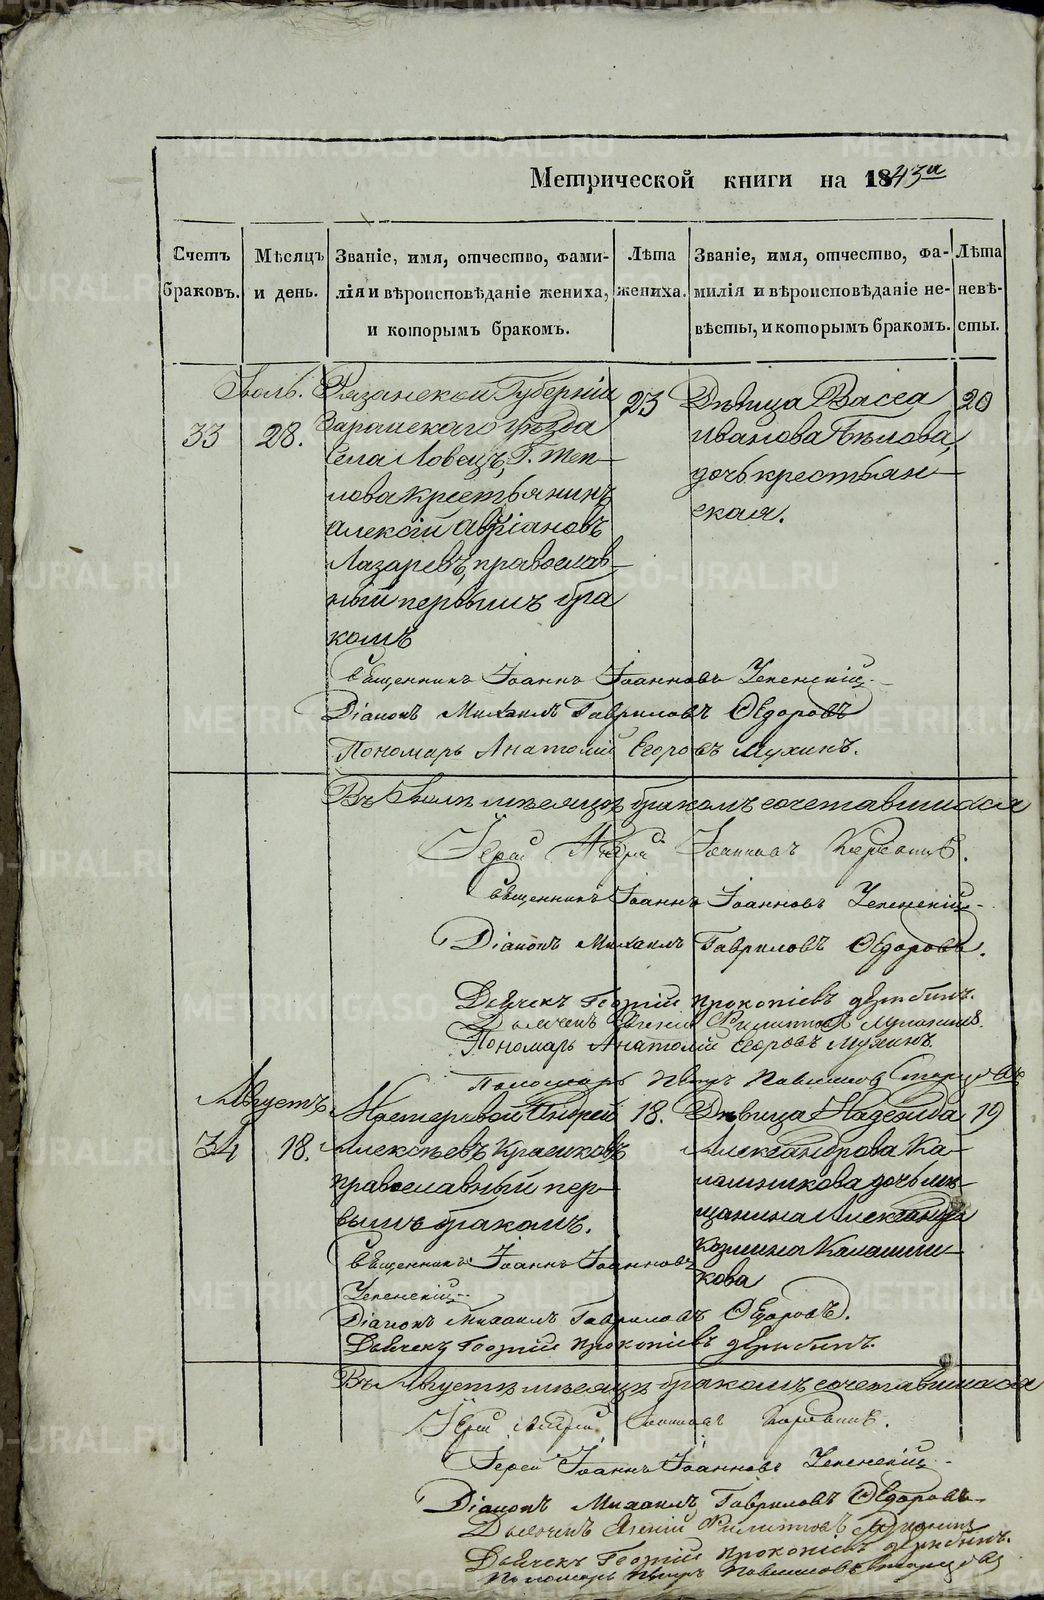 METRIKI.GASO-URAL.RU
Метрической книги на 1843й
Счетъ браковъ.
Мѣсяцъ и день.
Званіе, имя, отчество, фами-
лія и вѣроисповѣданіе жениха,
и которымъ бракомъ.
Лѣта жениха.
Званіе, имя, отчество, фа-
милія и вѣроисповѣданіе не-
вѣсты, и которымъ бракомъ.
Лѣта невѣ-
сты.
33
Іюль.
28.
Рязанской Губерніи
Зарайскаго уѣзда
села Ловецъ, Г.
крестьянинъ
Алексій
Лазаревъ, православ-
ный первымъ бра
комъ
23
Дѣвица Васса
Иванова Бѣлова,
дочь крестьян-
ская.
20
Священникъ Іоаннъ Іоанновъ
Діаконъ Михаилъ Гавриловъ Ѳедоровъ
Пономарь Анатолій Егоровъ Мухинъ.
Въ Іюлѣ мѣсяцѣ бракомъ сочетавшихся
Іерей Андрей Іоанновъ
Священникъ Іоаннъ Іоанновъ
Діаконъ Михаилъ Гавриловъ Ѳедоровъ.
Дьячекъ Георгій Прокопіевъ
Дьячекъ Евгеній Филипповъ
Пономарь Анатолій Егоровъ Мухинъ.
Пономарь Петръ
34
Августъ
18.
Мастеровой Андрей
Алексѣевъ
православный пер-
вымъ бракомъ.
18.
Дѣвица Надежда
Александрова Ка-
лашникова дочь мѣ-
щанина Александра
Козмина Калашни-
кова
19
Священникъ Іоаннъ Іоанновъ
Діаконъ Михаилъ Гавриловъ Ѳедоровъ.
Дьячекъ Георгій Прокопіевъ
Въ Августѣ мѣсяцѣ бракомъ сочетавшихся
Іерей Андрей Іоанновъ
Іерей Іоаннъ Іоанновъ
Діаконъ Михаилъ Гавриловъ Ѳедоровъ
Дьячекъ Евгеній Филипповъ
Дьячекъ Георгій Прокопіевъ
Пономарь Петръ